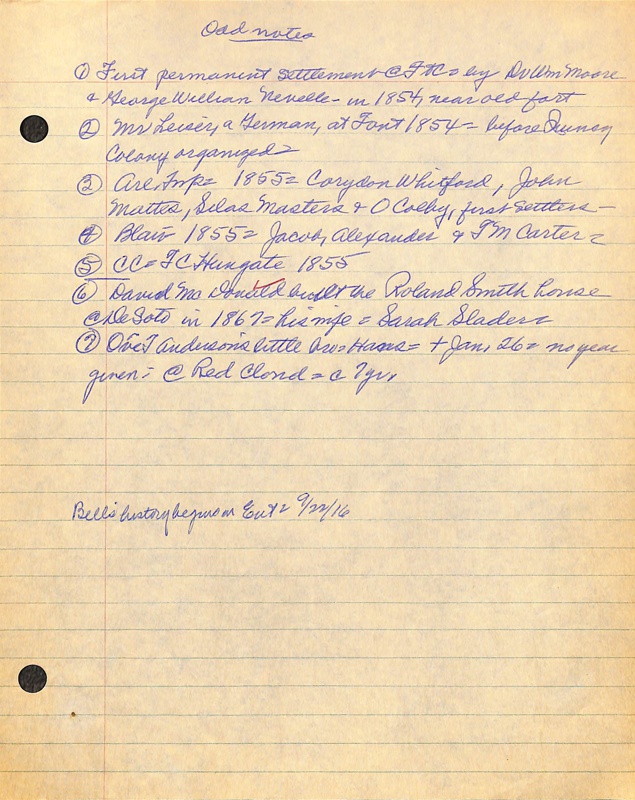 Odd notes
① First permanent settlement @ Ft C = by Dr Wm Moore
& George William Nevelle - in 1854, near old fort
② Mr Leiser, a German, at Font 1854 = before Quincy
Colony organized =
③ 1855 = Corydon Whitford, John
Mattes, Silas Masters & O Colby, first settlers -
④ Blair 1855 = Jacob, Alexander & T M Carter =
⑤ CC = T C Hungate 1855
⑥ David Mc Donald built the Roland Smith house
@ De Soto in 1867 = his wife = Sarah Slader =
⑦ Anderson's little bro = Hans = + Jan, 26 = no year
given = @ Red Cloud = c 7 yr.
Bell's history began in 9/22/16